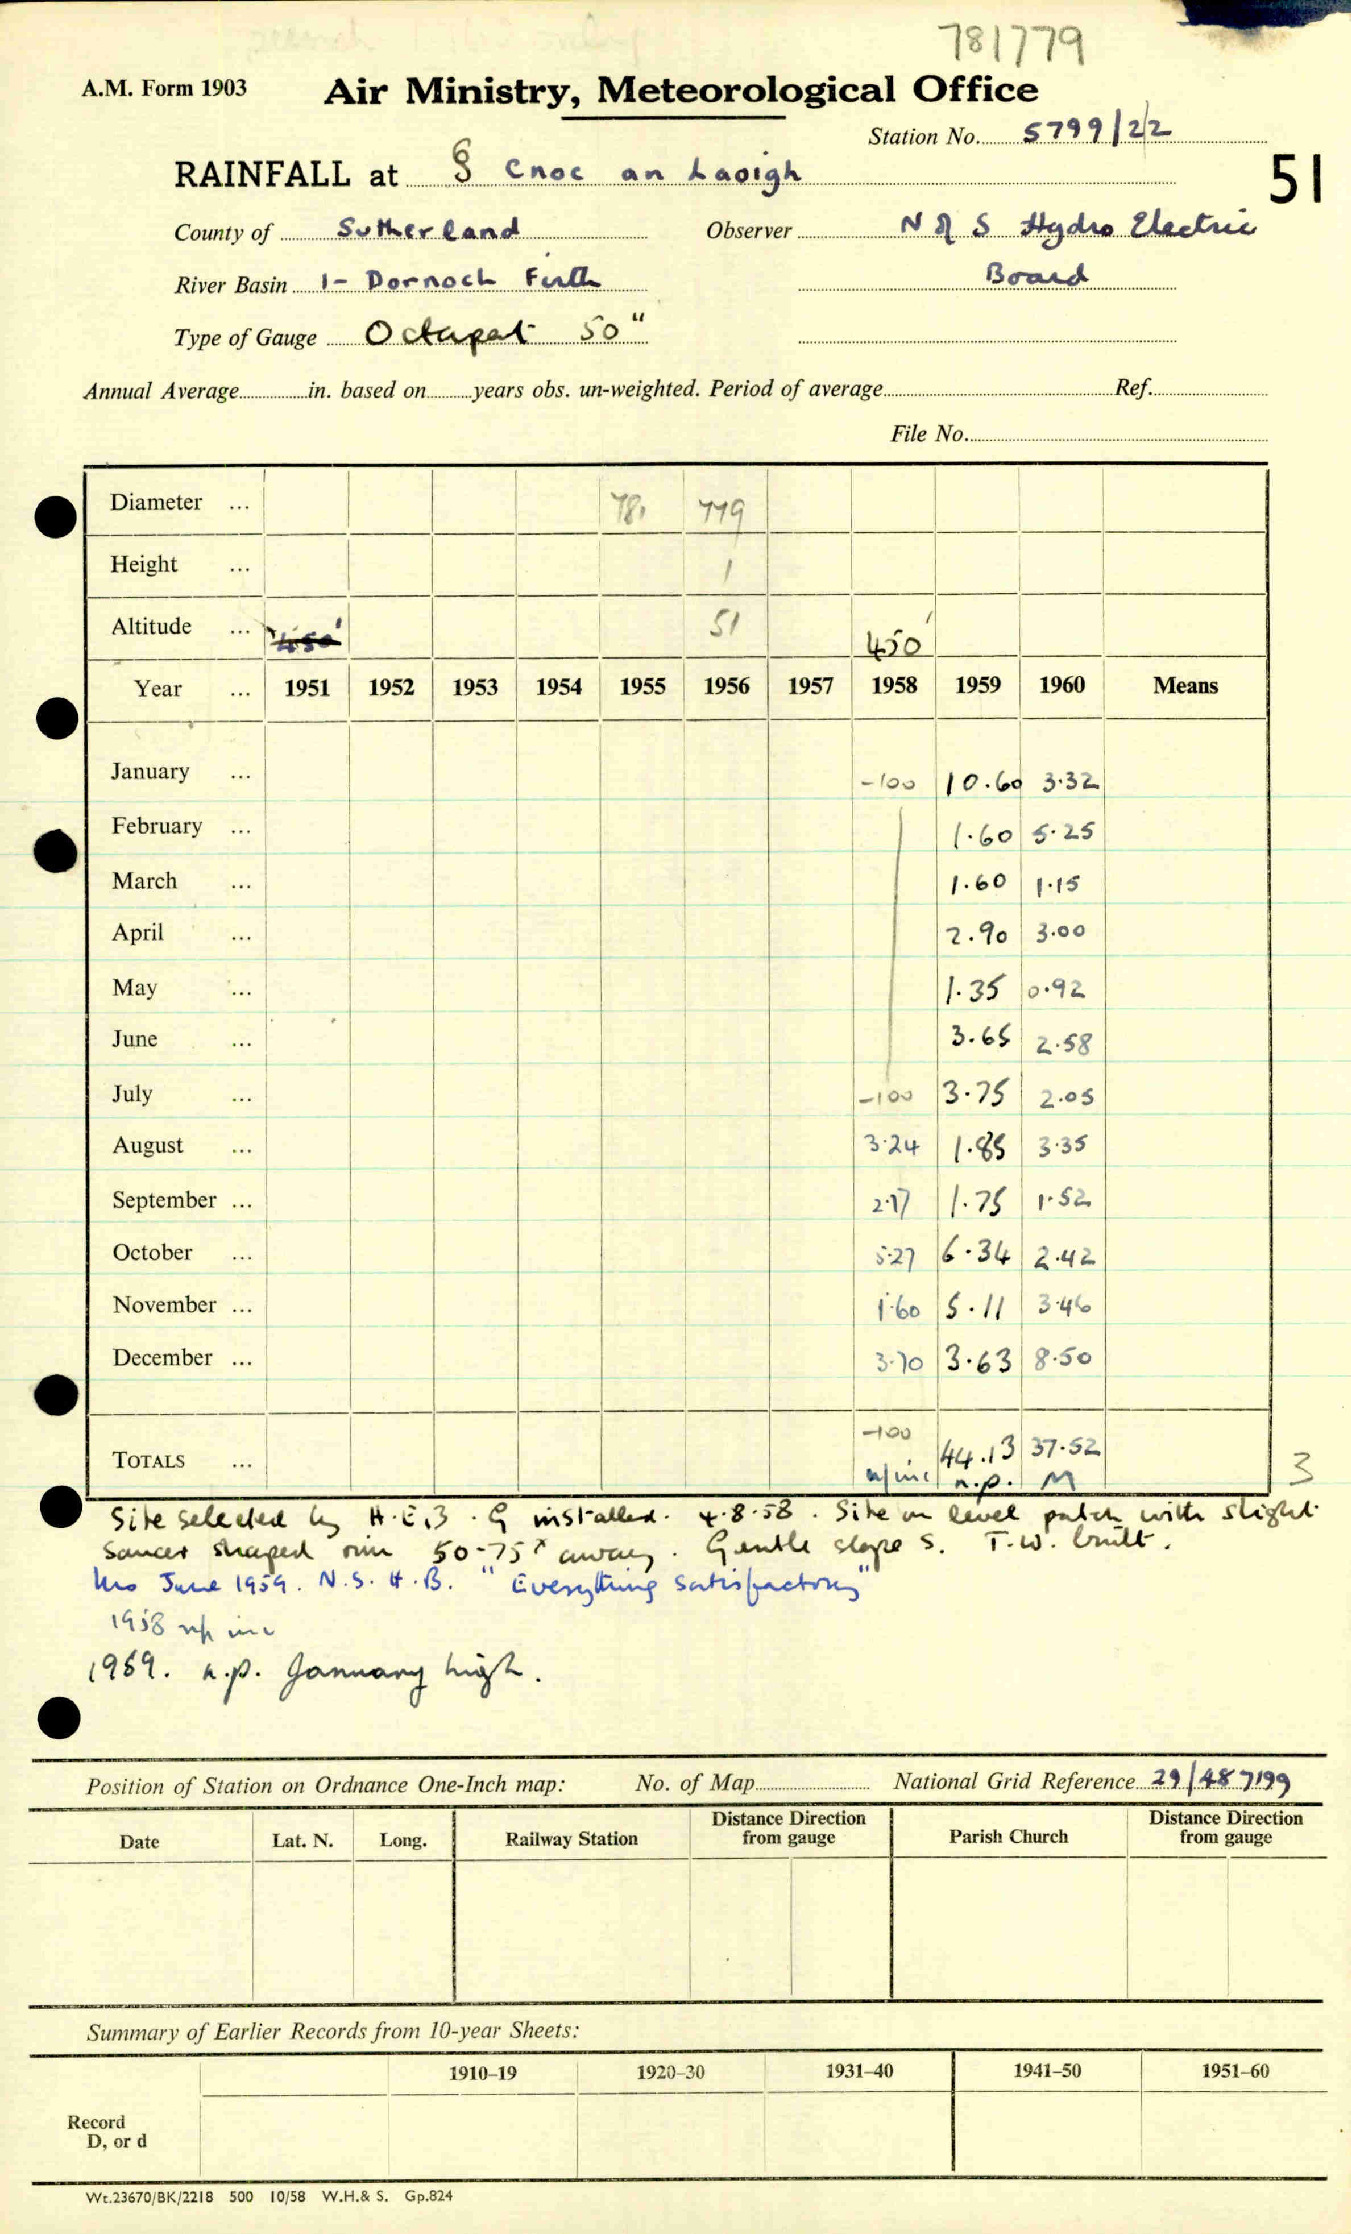 781779
A.M. Form 1903 Air Ministry, Meteorological Office
Station No. 5799/22
RAINFALL at § Cnoc an Laoigh 51
County of Sutherland Observer N of S Hydro Electric
River Basin 1- Dornoch Firth Board
Type of Gauge Octapent 50"
Annual Average in. based on years obs. un-weighted. Period of average Ref.
File No.
Diameter ... 781 779
Height ... 1
Altitude ... 450' 51 450'
Year ... 1951 1952 1953 1954 1955 1956 1957 1958 1959 1960 Means
January ... -100 10.60 3.32
February ... 1.60 5.25
March ... 1.60 1.15
April ... 2.90 3.00
May ... 1.35 0.92
June ... 3.65 2.58
July ... -100 3.75 2.05
August ... 3.24 1.85 3.35
September ... 2.17 1.75 1.52
October ... 5.27 6.34 2.42
November ... 1.60 5.11 3.46
December ... 3.70 3.63 8.50
-100
TOTALS ... 44.13 37.52 3
inc n.p. M
Site selected by H.E.B. G installed. 4.8.58. Site on level patch with slight
saucer shaped rim 50-75x away. Gentle slope S. T.W. built.
June 1959. N.S.H.B. "Everything satisfactory"
1958 np inc
1959. n.p. January high.
Position of Station on Ordnance One-Inch map: No. of Map National Grid Reference 29/487199
Date Lat. N. Long. Railway Station Distance Direction from gauge Parish Church Distance Direction from gauge
Summary of Earlier Records from 10-year Sheets:
1910–19 1920–30 1931–40 1941–50 1951–60
Record
D, or d
Wt.23670/BK/2218 500 10/58 W.H.& S. Gp.824